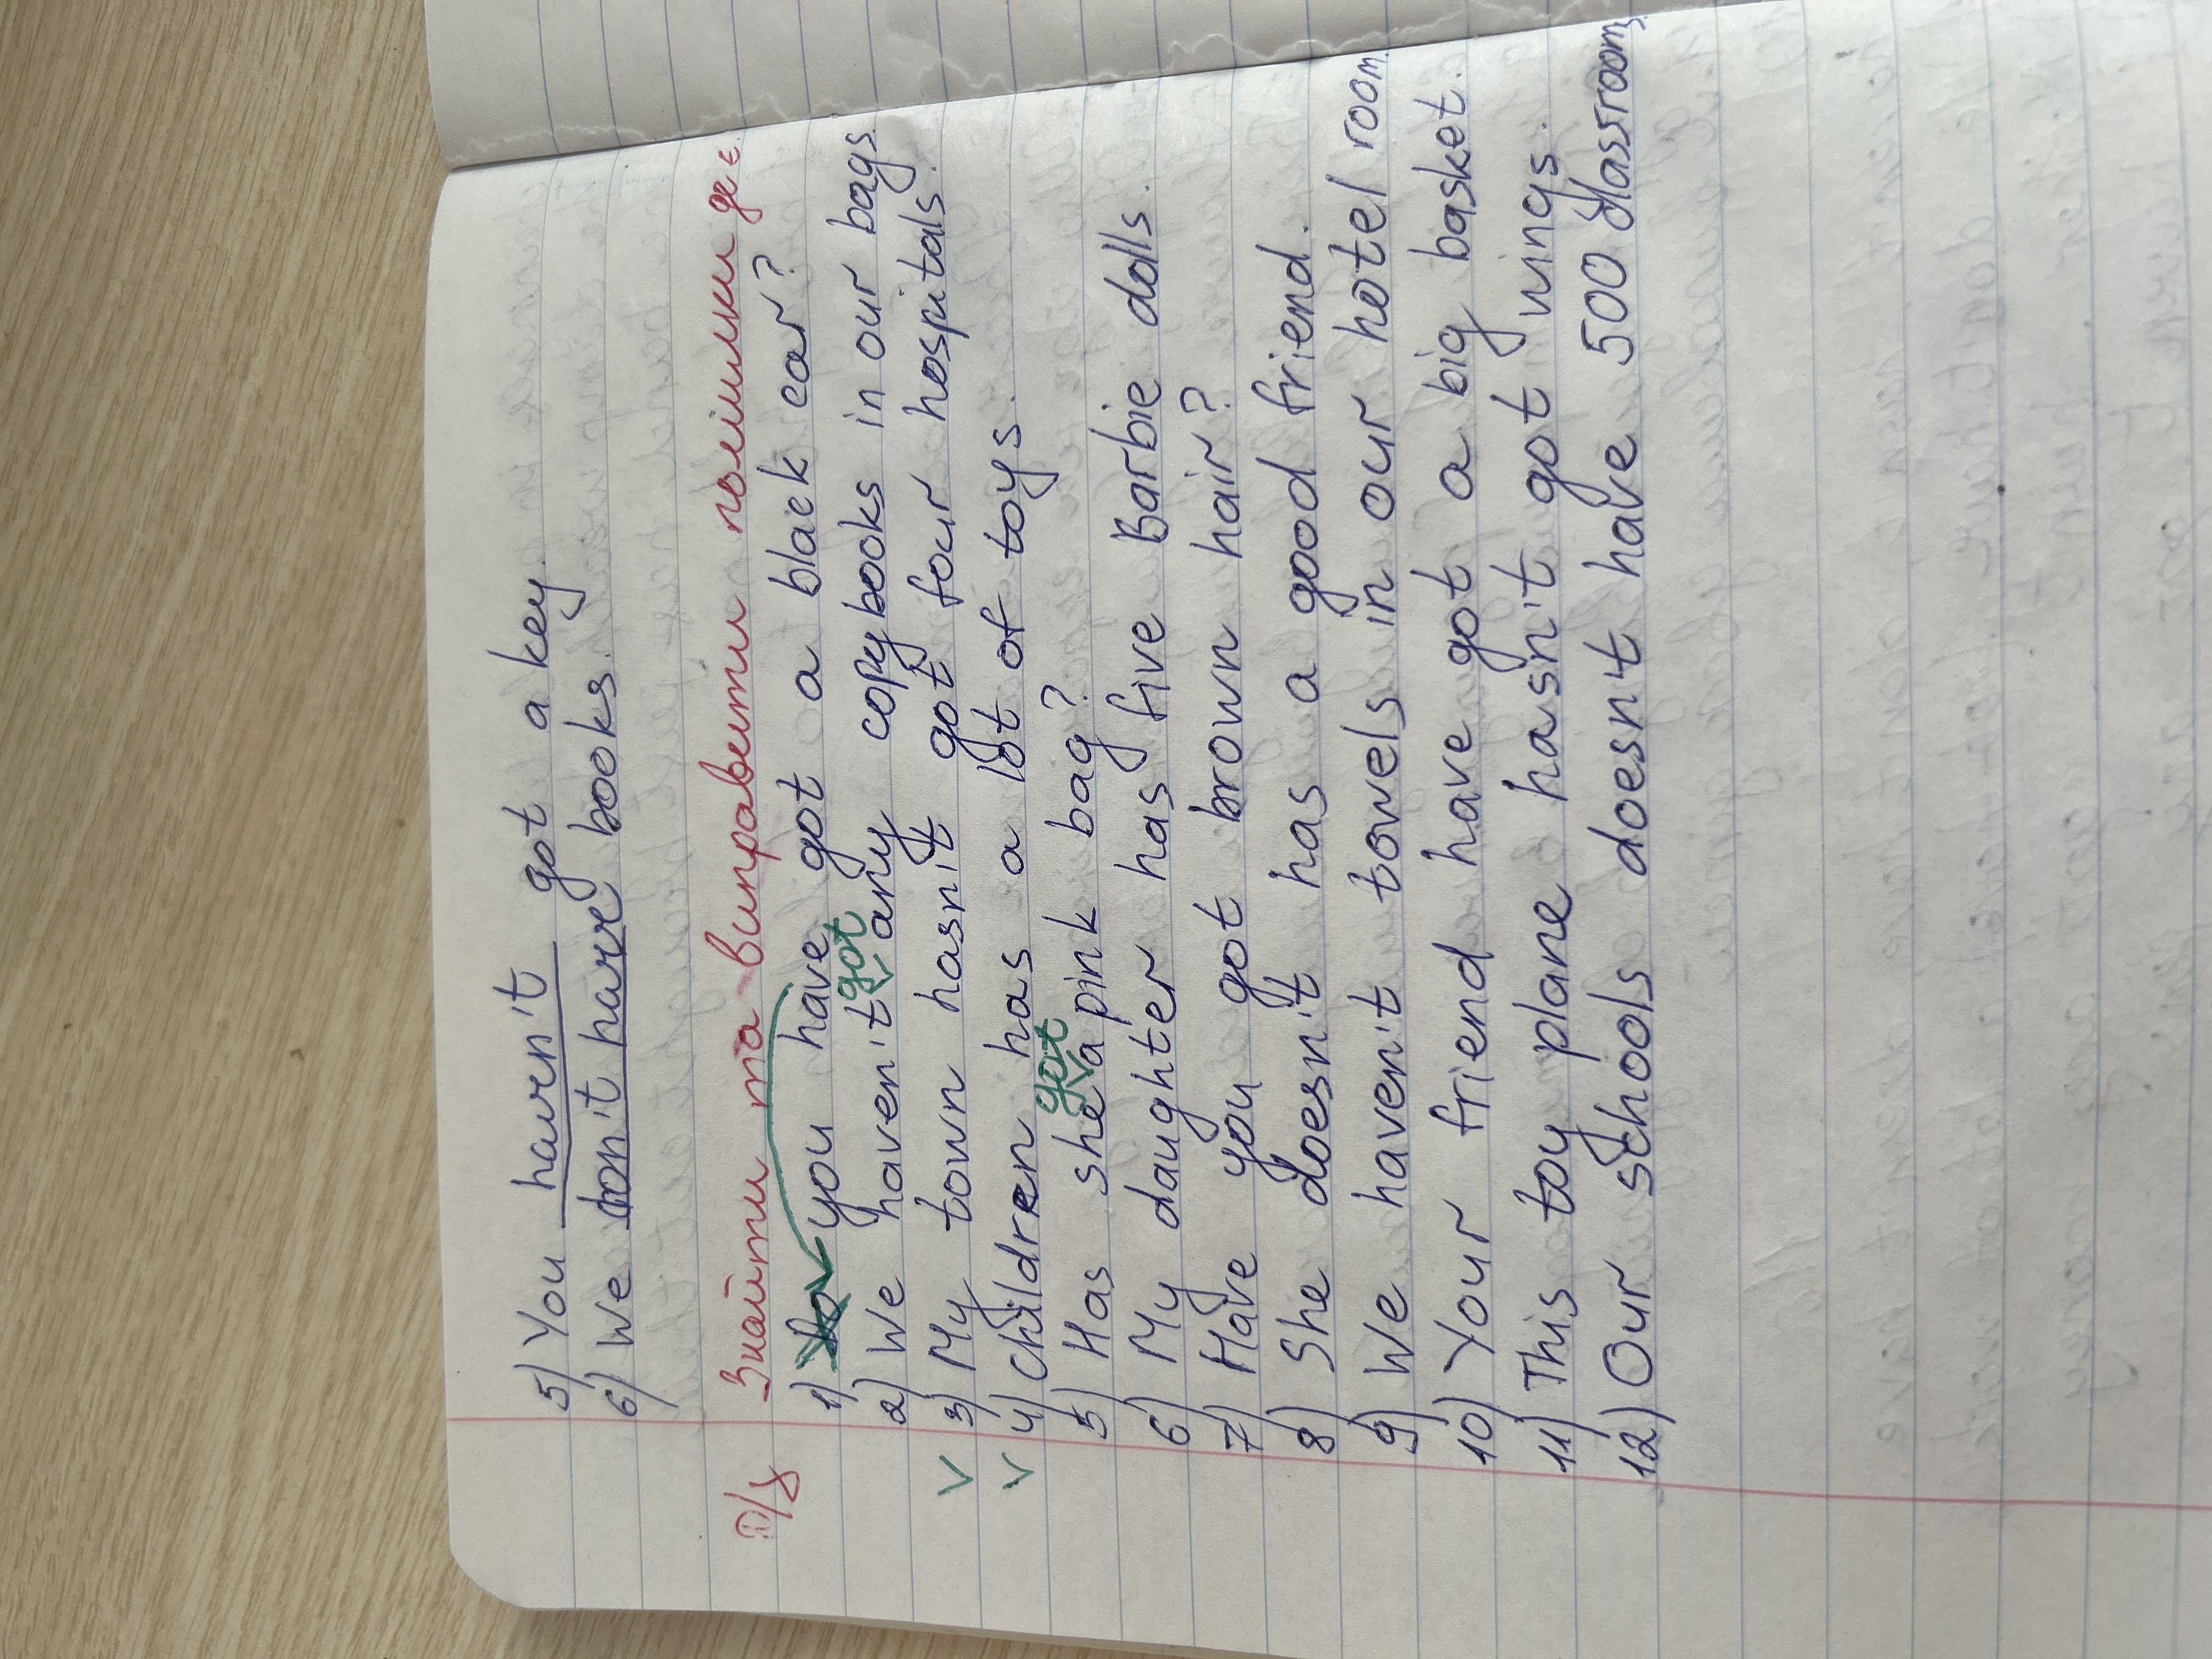 5) You haven't got a key.
6) We don't have books.
D/з Знайти та виправити помилки де є.
1) you have got a black car?
2) We haven't got any copybooks in our bags.
3) My town hasn't got four hospitals.
4) Children has a lot of toys.
5) Has she got a pink bag?
6) My daughter has five Barbie dolls.
7) Have you got brown hair?
8) She doesn't has a good friend.
9) We haven't towels in our hotel room.
10) Your friend have got a big basket.
11) This toy plane hasn't got wings.
12) Our schools doesn't have 500 classrooms.